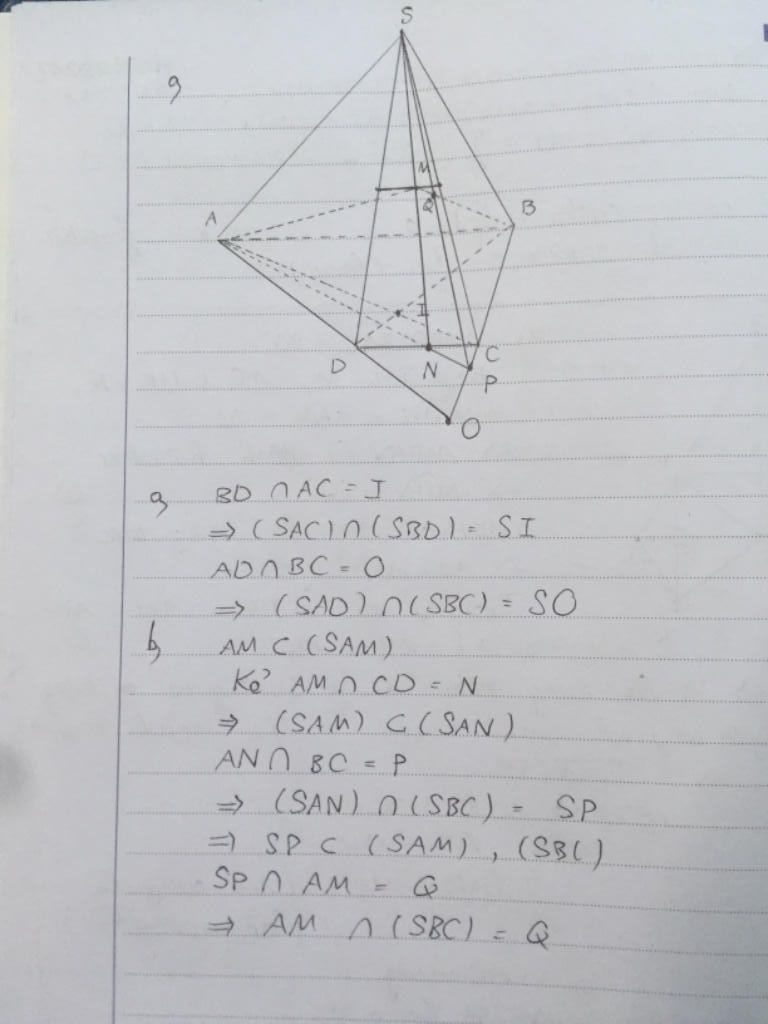 a,
S
M
Q
A
B
I
D
N
C
P
O
a, BD ∩ AC = I
⇒ (SAC) ∩ (SBD) = SI
AD ∩ BC = O
⇒ (SAD) ∩ (SBC) = SO
b, AM ⊂ (SAM)
Kẻ AM ∩ CD = N
⇒ (SAM) ⊂ (SAN)
AN ∩ BC = P
⇒ (SAN) ∩ (SBC) = SP
⇒ SP ⊂ (SAM), (SBC)
SP ∩ AM = Q
⇒ AM ∩ (SBC) = Q